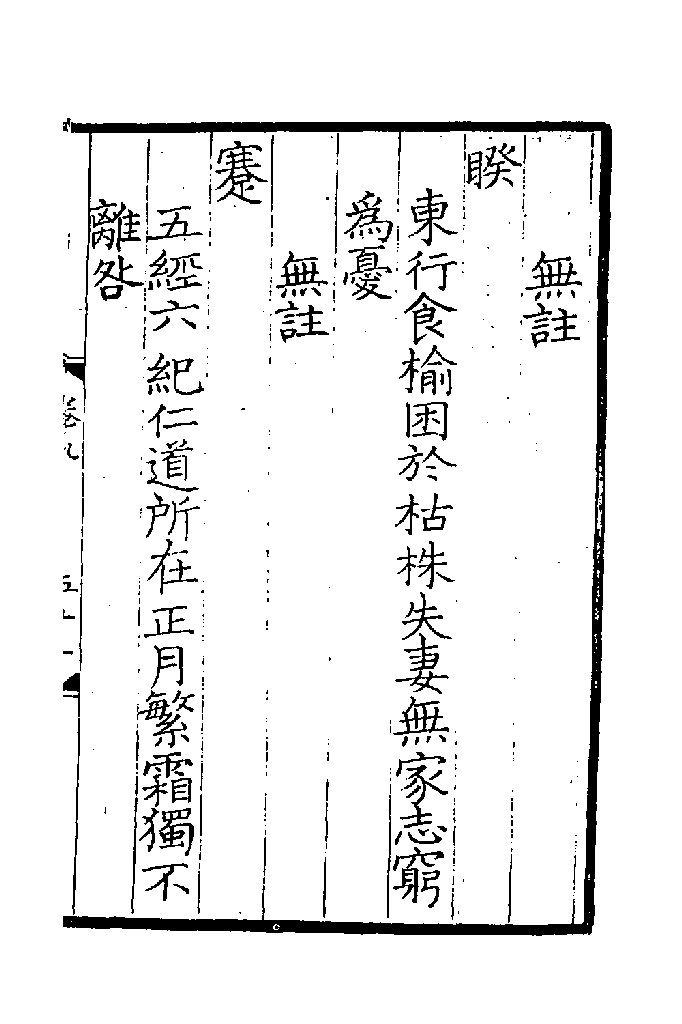 無註
睽
東行食榆困於枯株失妻無家志窮
爲憂
無註
蹇
五經六紀仁道所在正月繁霜獨不
離咎
卷九